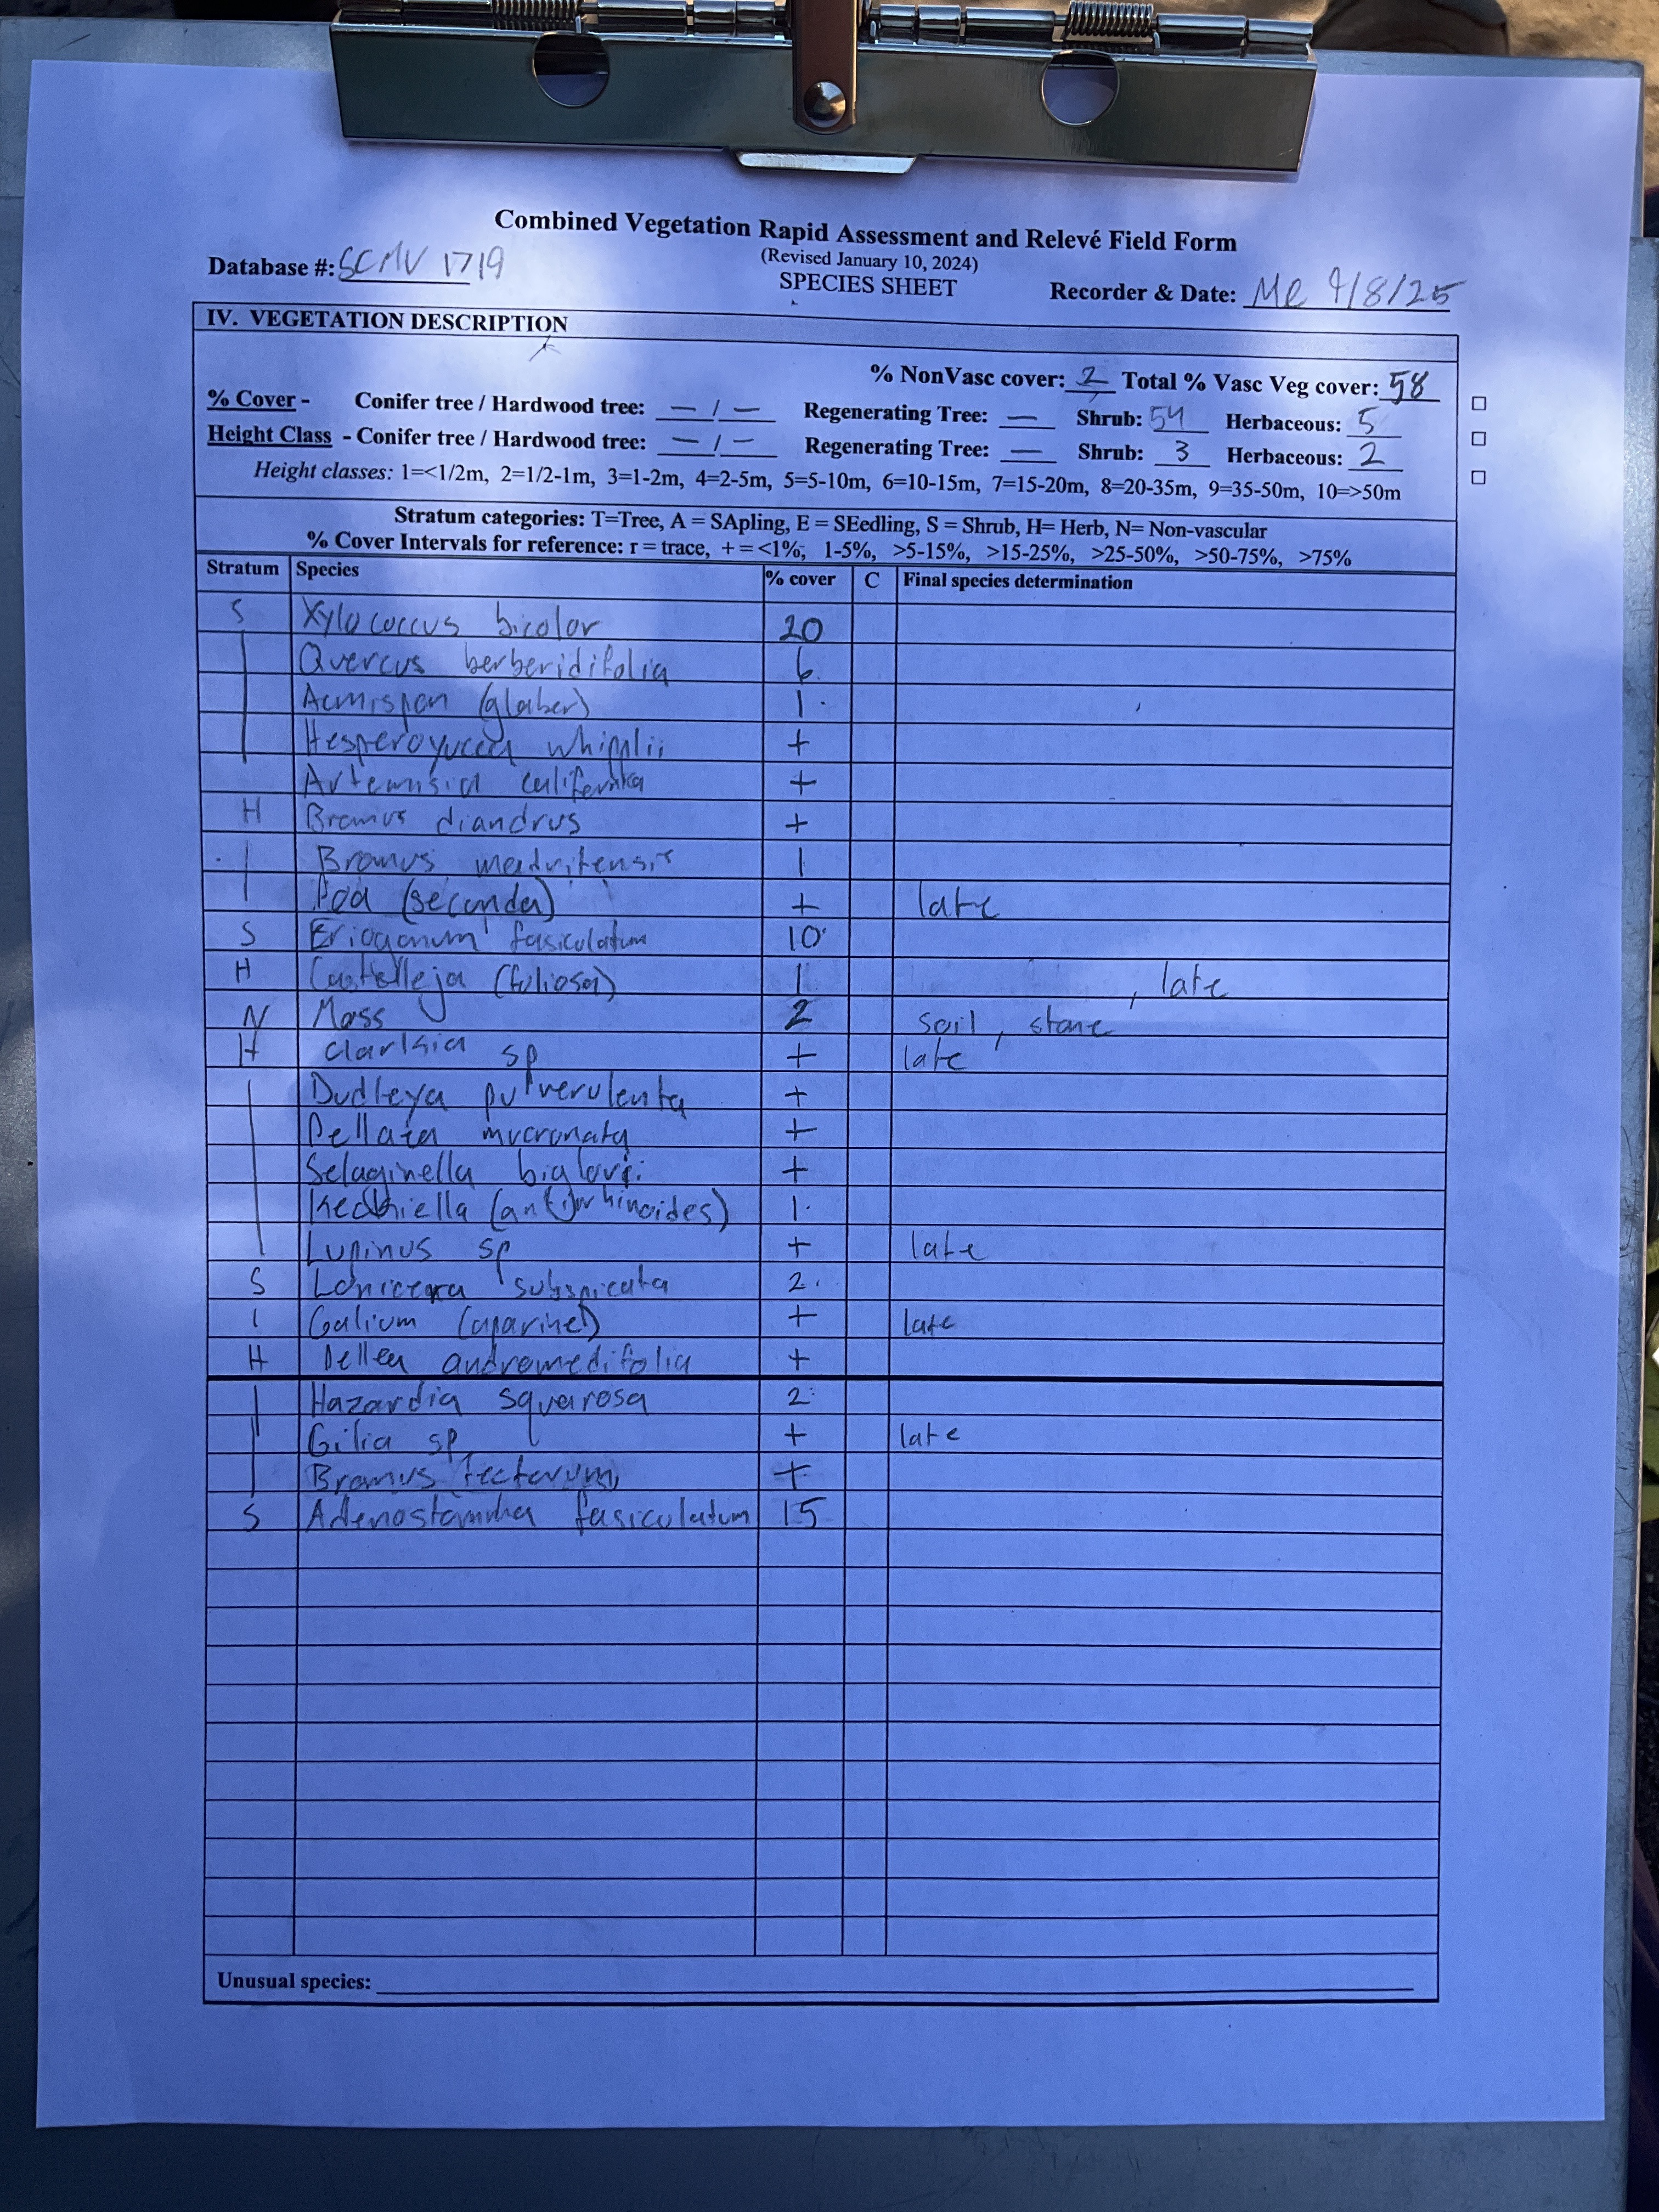 Combined Vegetation Rapid Assessment and Relevé Field Form
(Revised January 10, 2024)
Database #: SCMV 1719 SPECIES SHEET Recorder & Date: 4/8/25
IV. VEGETATION DESCRIPTION
% NonVasc cover: 2 Total % Vasc Veg cover: 58
% Cover - Conifer tree / Hardwood tree: — / — Regenerating Tree: — Shrub: 54 Herbaceous: 5
Height Class - Conifer tree / Hardwood tree: — / — Regenerating Tree: — Shrub: 3 Herbaceous: 2
Height classes: 1=<1/2m, 2=1/2-1m, 3=1-2m, 4=2-5m, 5=5-10m, 6=10-15m, 7=15-20m, 8=20-35m, 9=35-50m, 10=>50m
Stratum categories: T=Tree, A = SApling, E = SEedling, S = Shrub, H= Herb, N= Non-vascular
% Cover Intervals for reference: r = trace, + = <1%, 1-5%, >5-15%, >15-25%, >25-50%, >50-75%, >75%
Stratum Species % cover C Final species determination
S Xylococcus bicolor 20
Quercus berberidifolia 6
Acmispon (glaber) 1
Hesperoyucca whipplii +
Artemisia californica +
H Bromus diandrus +
Bromus madritensis 1
Poa (secunda) + late
S Eriogonum fasiculatum 10
H Castelleja (foliosa) 1 , late
N Moss 2 soil, stone
H Clarkia sp + late
Dudleya pulverulenta +
Pellaea mucronata +
Selaginella biglovi +
Keckiella (antirrhinoides) 1
Lupinus sp + late
S Lonicera subspicata 2
Galium (aparine) + late
H Pellea andromedifolia +
Hazardia squarosa 2
Gilia sp + late
Bromus tectorum +
S Adenostomma fasiculatum 15
Unusual species: